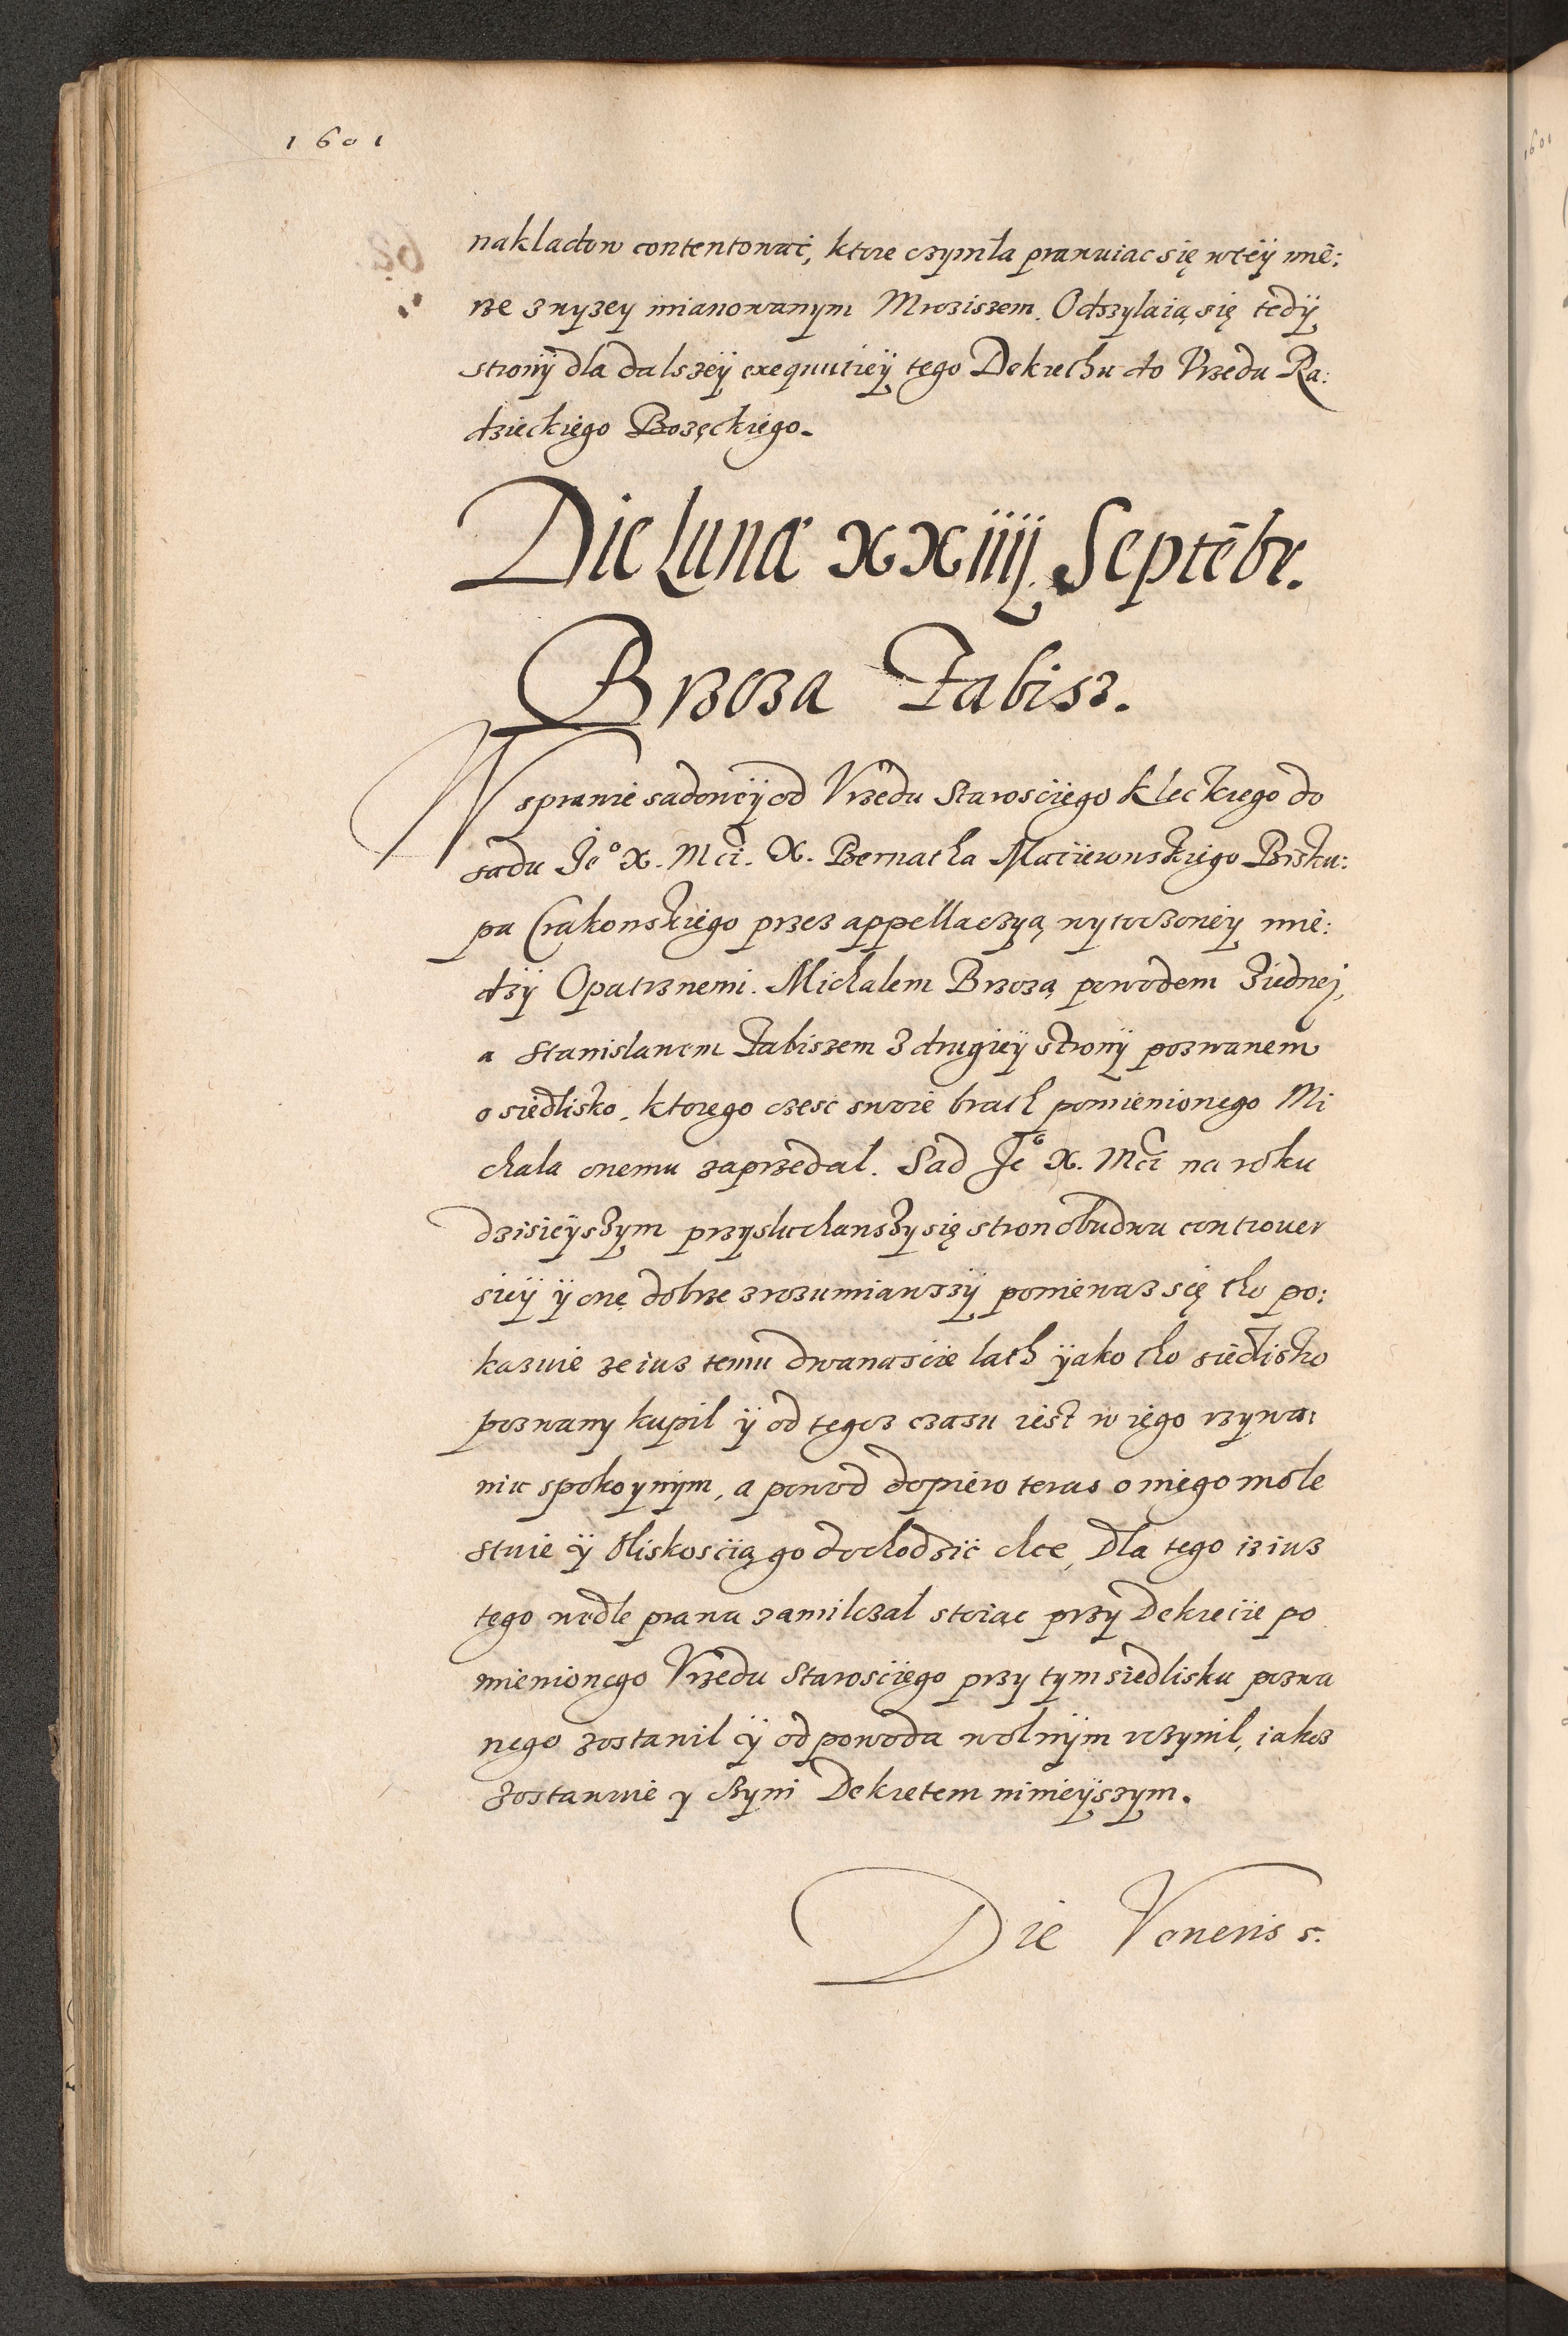 1601
nakladow contentować, ktore czyniła prawuiac się wtëÿ mië:
rze zwyzey mianowanym Mroziszem. Odszylaią się tedÿ
stronÿ dla dalszëÿ exequutiëÿ tego Dekrethu do Vrzedu Ra:
dzieckiego Bozęckiego.
Die Lunæ xxiiij Septēbr.
Brzoza Fabisz.
W sprawie sadowëÿ od Vrzedu Starosciego Kleckiego do
sadu Je° X. Mći. X. Bernatha Maciiewuskiego Bisku:
pa Crakowskiego przez appellaczyą wytoczonëÿ mie:
dzÿ Opatrznemi. Michalem Brzozą powodem ziednej,
a Stanislawem Fabiszem z drugiëÿ stronÿ pozwanem
o siedlisko, ktorego czesc swoie brath pomienionego Mi
chala onemu zaprzedal. Sad Je° X. Mći na roku
dzisiëÿszym przysluchawszy się stron obudwu controuer
siëÿ ÿ onę dobrze zrozumiawszÿ poniewaz się tho po:
kazuie ze iuz temu dwanascie lath ÿako tho siedlisko
pozwany kupil ÿ od tegoz czasu iest w iego vzywa:
niu spokoynÿm, a powod dopiero teras o niego mole
stuie ÿ bliskoscią go dochodzić chce, Dla tego iz iuz
tego wedle prawa zamilczal stoiąc przy Dekrecie po
mienionego Vrzedu Starosciego przy tym siedlisku pozwa
nego zostawil ÿ od powoda wolnÿm vczynil, iakoz
zostawuie y czyni Dekretem ninieÿszym.
Die Veneris 5.